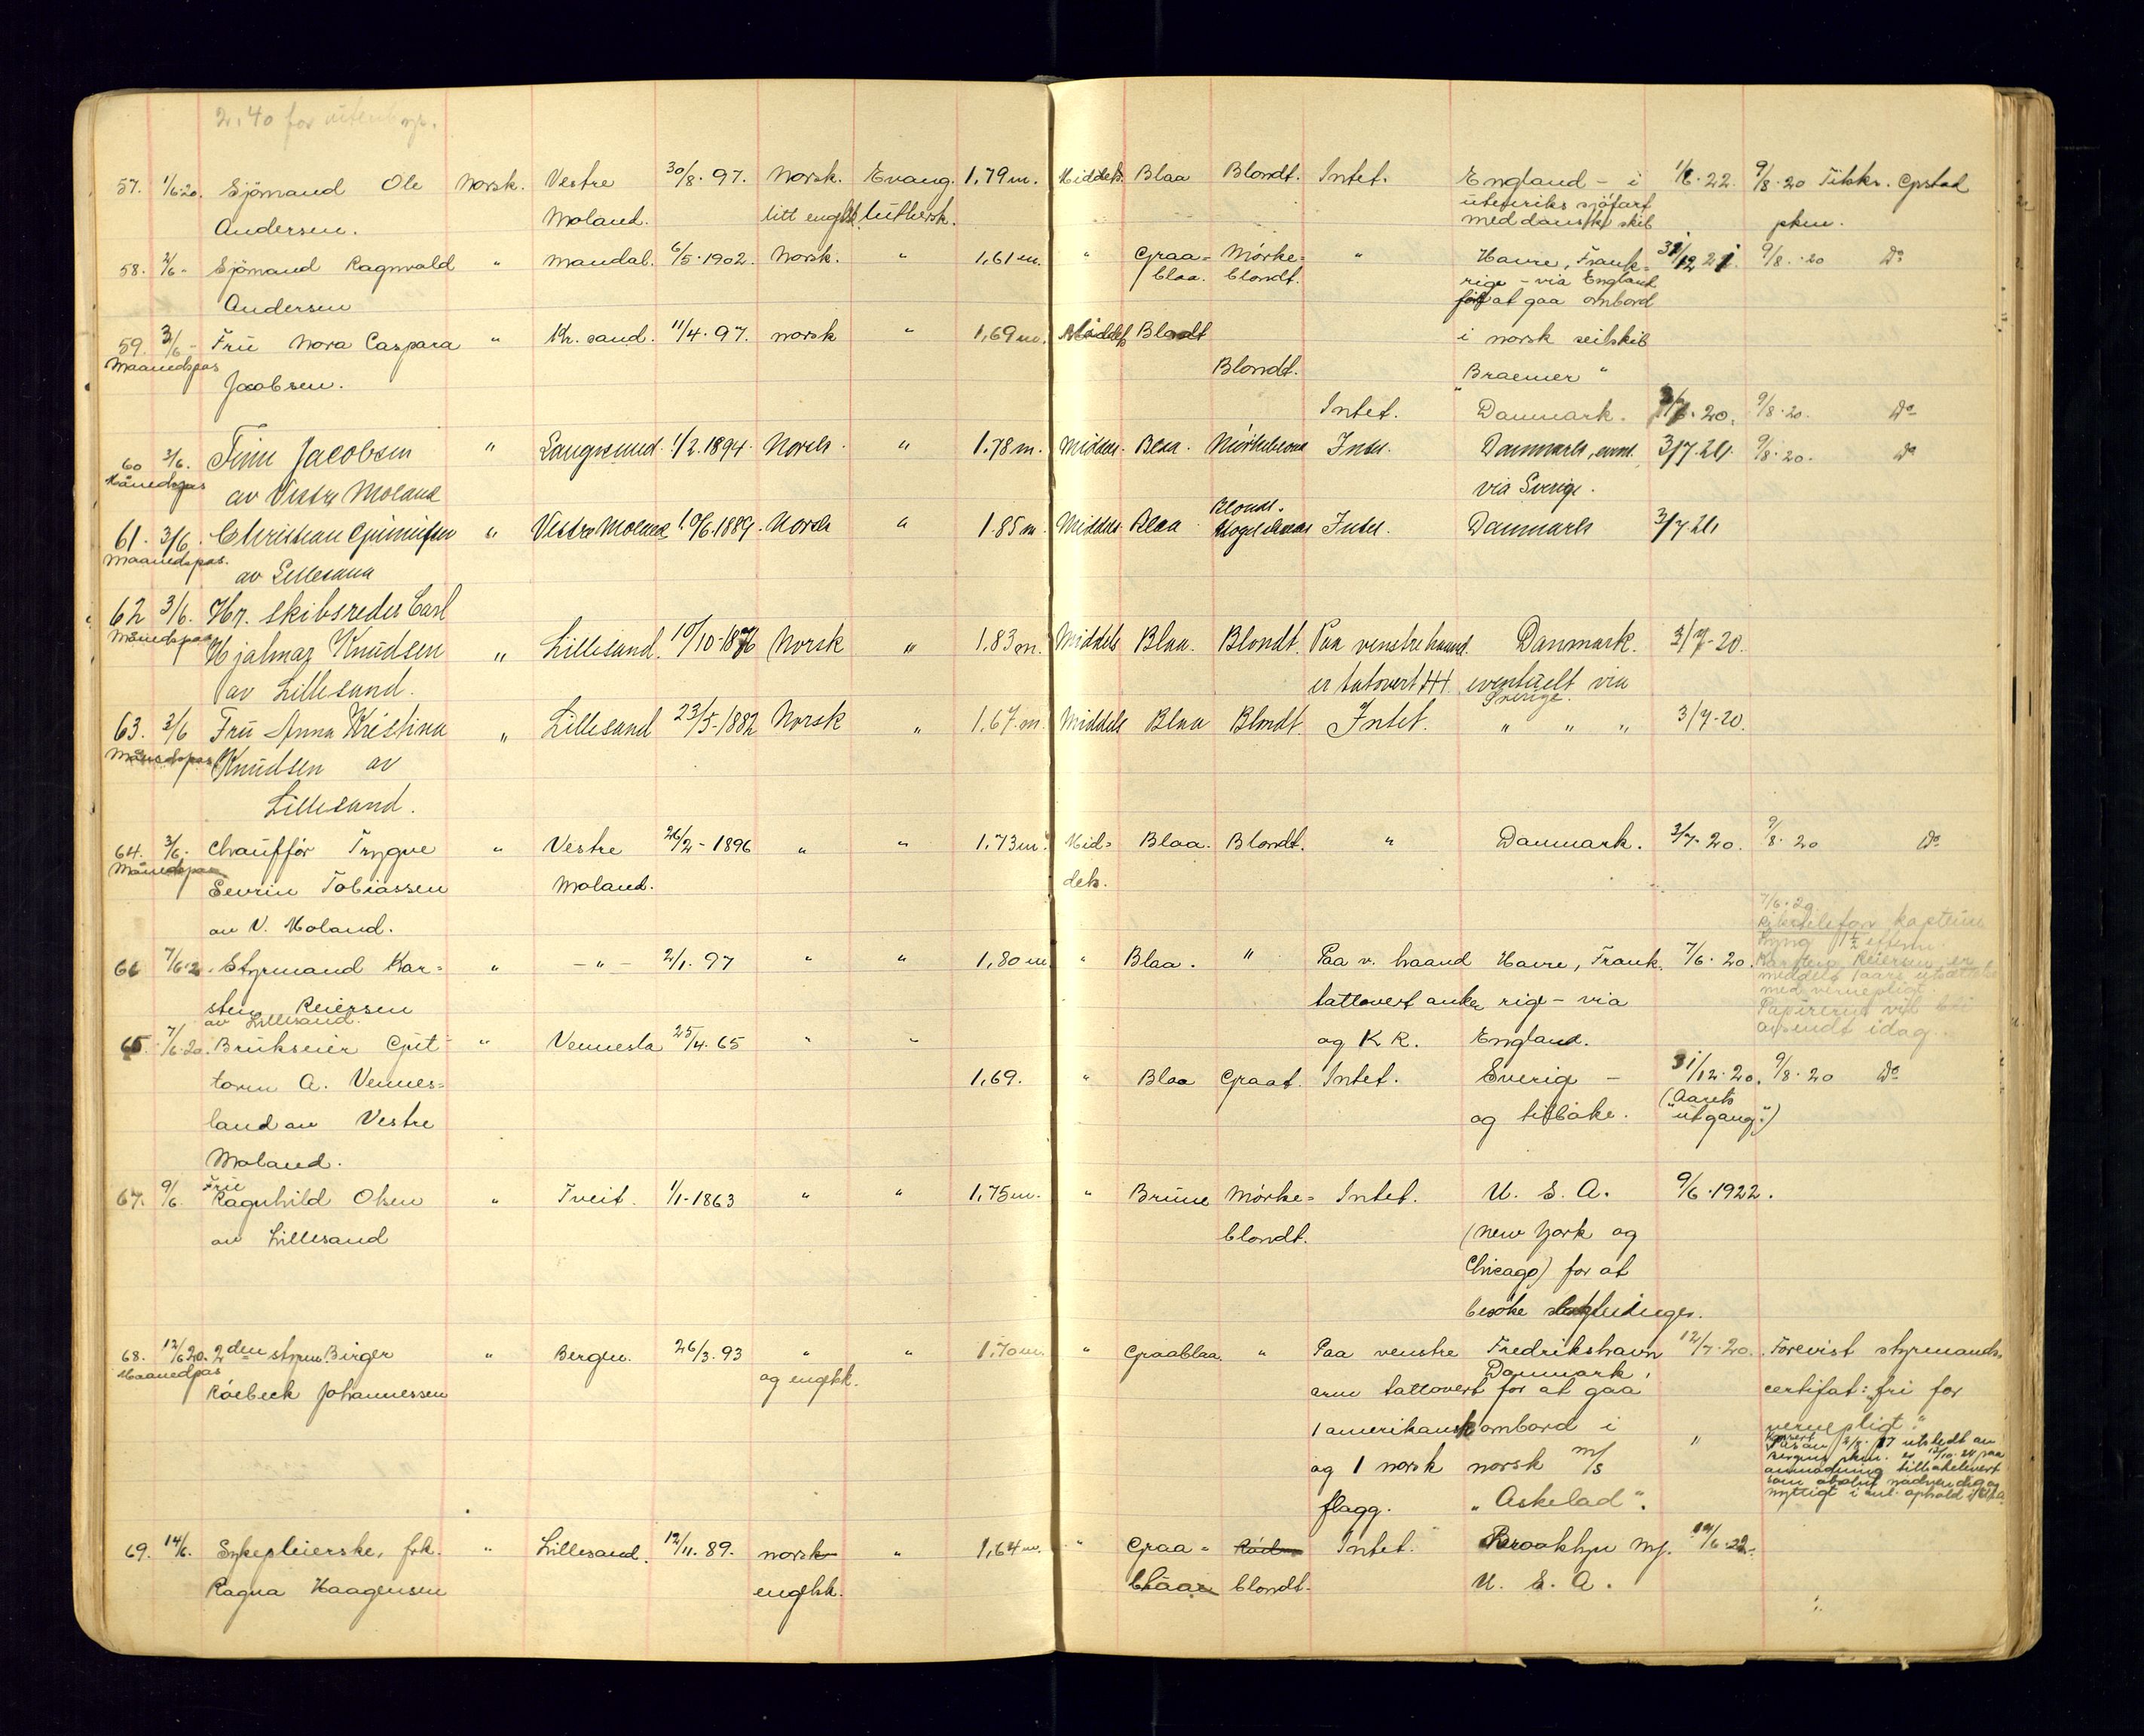 2.40 for
57. 1/6.20. Sjömand Ole Norsk. Vestre 30/8.97. Norsk. Evang. 1,79 m. Middels. Blaa Blondt. Intet. England - i 1/6.22. 9/8.20 Tilkr. Gpstad
Andersen. Moland. litt engelsk. luthersk. utenriks sjöfart
med danske skib pken.
58. 2/6 - Sjömand Ragnvald " Mandal. 6/5.1902. Norsk. " 1,61 m. " Graa= Mörke= " Havre, Frank= 31/12 21. 9/8.20 Do
Andersen blaa. blondt. rige - via England
for at gaa ombord
59. 3/6 - Frü Nora Caspara " Kr. sand. 11/4.97. norsk " 1,69 m. Middels Blondt i norsk seilskib
Maanedspas Jacobsen. Blondt. "Braemer"
Intet. Danmark. 3/7.20. 9/8.20. Do
60 3/6. Finn Jacobsen " Langesund. 1/2.1894. Norsk. " 1.78 m. Middels. Blaa. Mörkeblond Intet. Danmark, event. 3/7.20. 9/8.20. Do
Månedspas av Vestre Moland via Sverige.
61. 3/6. Christian " Vestre Moland 10/6.1889. Norsk " 1.85 m. Middels. Blaa Blondt. Intet. Danmark 3/7 20
Maanedspas. av Lillesand
62 3/6. Hr. skibsreder Carl
Månedspas Hjalmar Knüdsen " Lillesand. 10/10-1876 Norsk " 1.83 m. Middels Blaa. Blondt. Paa venstre haand. Danmark. 3/7-20.
av Lillesand. er tatovert eventüelt via
Sverige.
63. 3/6 Frü Anna Kristina " Lillesand 23/5-1882 Norsk " 1,67 m. Middels Blaa Blondt. Intet. " " " 3/7-20.
Månedspas Knüdsen av
Lillesand.
64. 3/6. Chaufför Trygve " Vestre 26/2-1896 " " 1.73 m. Mid= Blaa. Blondt. " Danmark. 3/7.20. 9/8.20 Do
Månedspas Sevrin Tobiassen Moland. dels.
av V. Moland.
7/6.20
66 7/6.2. Styrmand Kar= " - " - 2/1.97 " " 1,80 m " Blaa. " Paa v. haand Havre, Frank. 7/6.20. Karsten Reiersen er
sten Reiersen tattovert anker rige - via med vernepligt.
av Lillesand. og K R. England. avsendt idag.
65. 7/6.20. Brükseier Güt= " Vennesla 25/4.65 " "
torm A. Vennes= 1,69. " Blaa Graat. Intet. Sverig - 31/12.20. 9/8.20 Do
land av Vestre og tilbake. (Aarets utgang.)
Moland.
67. 9/6. Frü Ragnhild Olsen " Tveit. 1/1-1863 " " 1,75 m. " Brüne Mörke= Intet. U. S. A. 9/6.1922.
av Lillesand blondt. (New York og
Chicago) for at
besöke slegtninger.
68. 12/6 20. 2den styrm. Birger " Bergen. 26/3.93 " " 1.70 m. " Graablaa. " Paa venstre Fredrikshavn 12/7.20. Forevist styrmands=
Maanedpas Röebeck Johannessen og engelsk. arm tattovert Danmark, for at gaa certifat: "fri for
1 amerikansk ombord i vernepligt."
og 1 norsk norsk m/s
flagg. "Askelad".
69. 14/6. Sykepleierske, frk. " Lillesand. 12/11.89. norsk " 1,64 m. " Graa= Intet. Brooklyn 14/6.22.
Ragna Haagensen engelsk. blaa blondt. U. S. A.